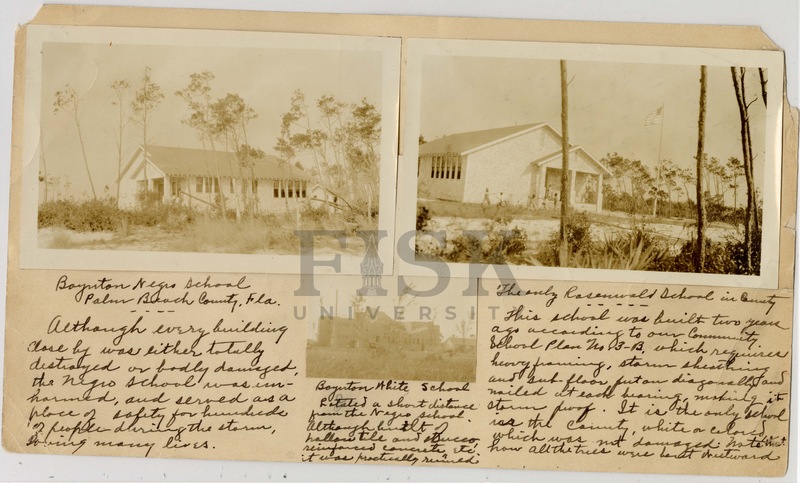 Boynton Negro School
Palm Beach County, Fla.
Although every building
close by was either totally
destroyed or badly damaged,
the Negro School was un-
harmed, and served as a
place of safety for hundreds
of people during the storm,
saving many lives.
FISK
UNIVERSITY
Boynton White School
Located a short distance
from the Negro school.
Although built of
hollow tile and stucco,
reinforced concrete, etc
it was practically ruined
The only Rosenwald School in County
This school was built two years
ago according to our Community
School Plan No. 3-B, which requires
heavy framing, storm sheathing
and sub floor put on diagonally and
nailed at each bearing, making it
storm proof. It is the only school
in the County, white or colored,
which was not damaged. Note
how all the trees were bent westward